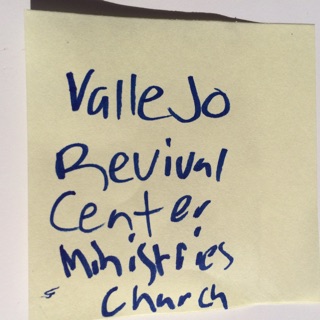 Vallejo
Revival
Center
Ministries
Church